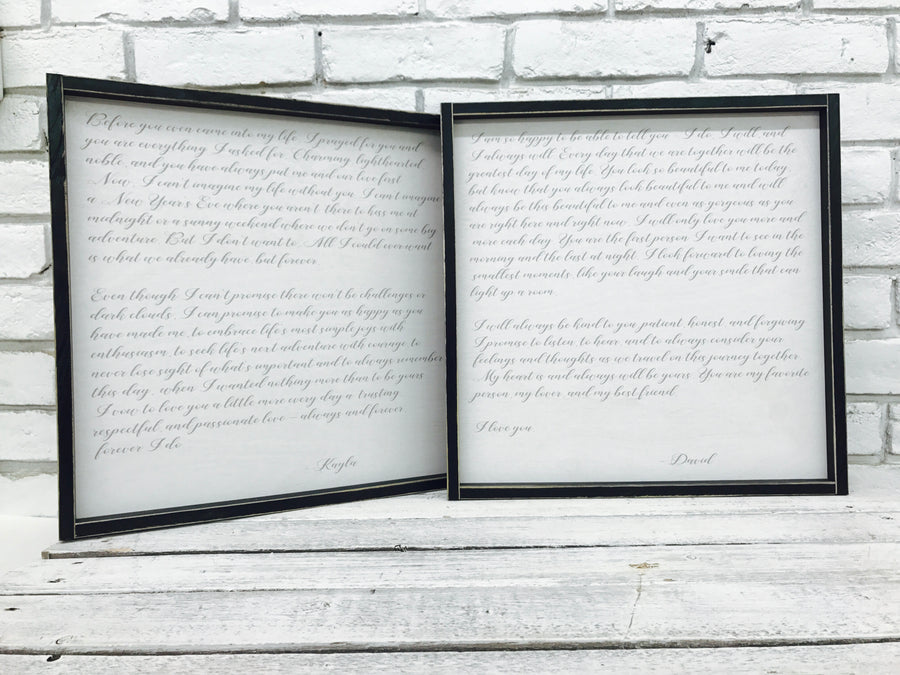 Before you even came into my life, I prayed for you and
you are everything I asked for. Charming, lighthearted,
noble, and you have always put me and our love first.
Now, I can't imagine my life without you. I can't imagine
a New Year's Eve where you aren't there to kiss me at
midnight or a sunny weekend where we don't go on some big
adventure. But I don't want to. All I could ever want
is what we already have, but forever.
Even though I can't promise there won't be challenges or
dark clouds, I can promise to make you as happy as you
have made me, to embrace life's most simple joys with
enthusiasm, to seek life's next adventure with courage, to
never lose sight of what's important and to always remember
this day, when I wanted nothing more than to be yours.
I vow to love you a little more every day a trusting,
respectful, and passionate love – always and forever,
forever. I do.
- Kayla
I am so happy to be able to tell you I do, I will, and
I always will. Every day that we are together will be the
greatest day of my life. You look so beautiful to me today,
but know that you always look beautiful to me and will
always be this beautiful to me and even as gorgeous as you
are right here and right now. I will only love you more and
more each day. You are the first person I want to see in the
morning and the last at night. I look forward to loving the
smallest moments, like your laugh and your smile that can
light up a room.
I will always be kind to you, patient, honest, and forgiving.
I promise to listen, to hear, and to always consider your
feelings and thoughts as we travel on this journey together.
My heart is and always will be yours. You are my favorite
person, my lover, and my best friend.
I love you.
- David